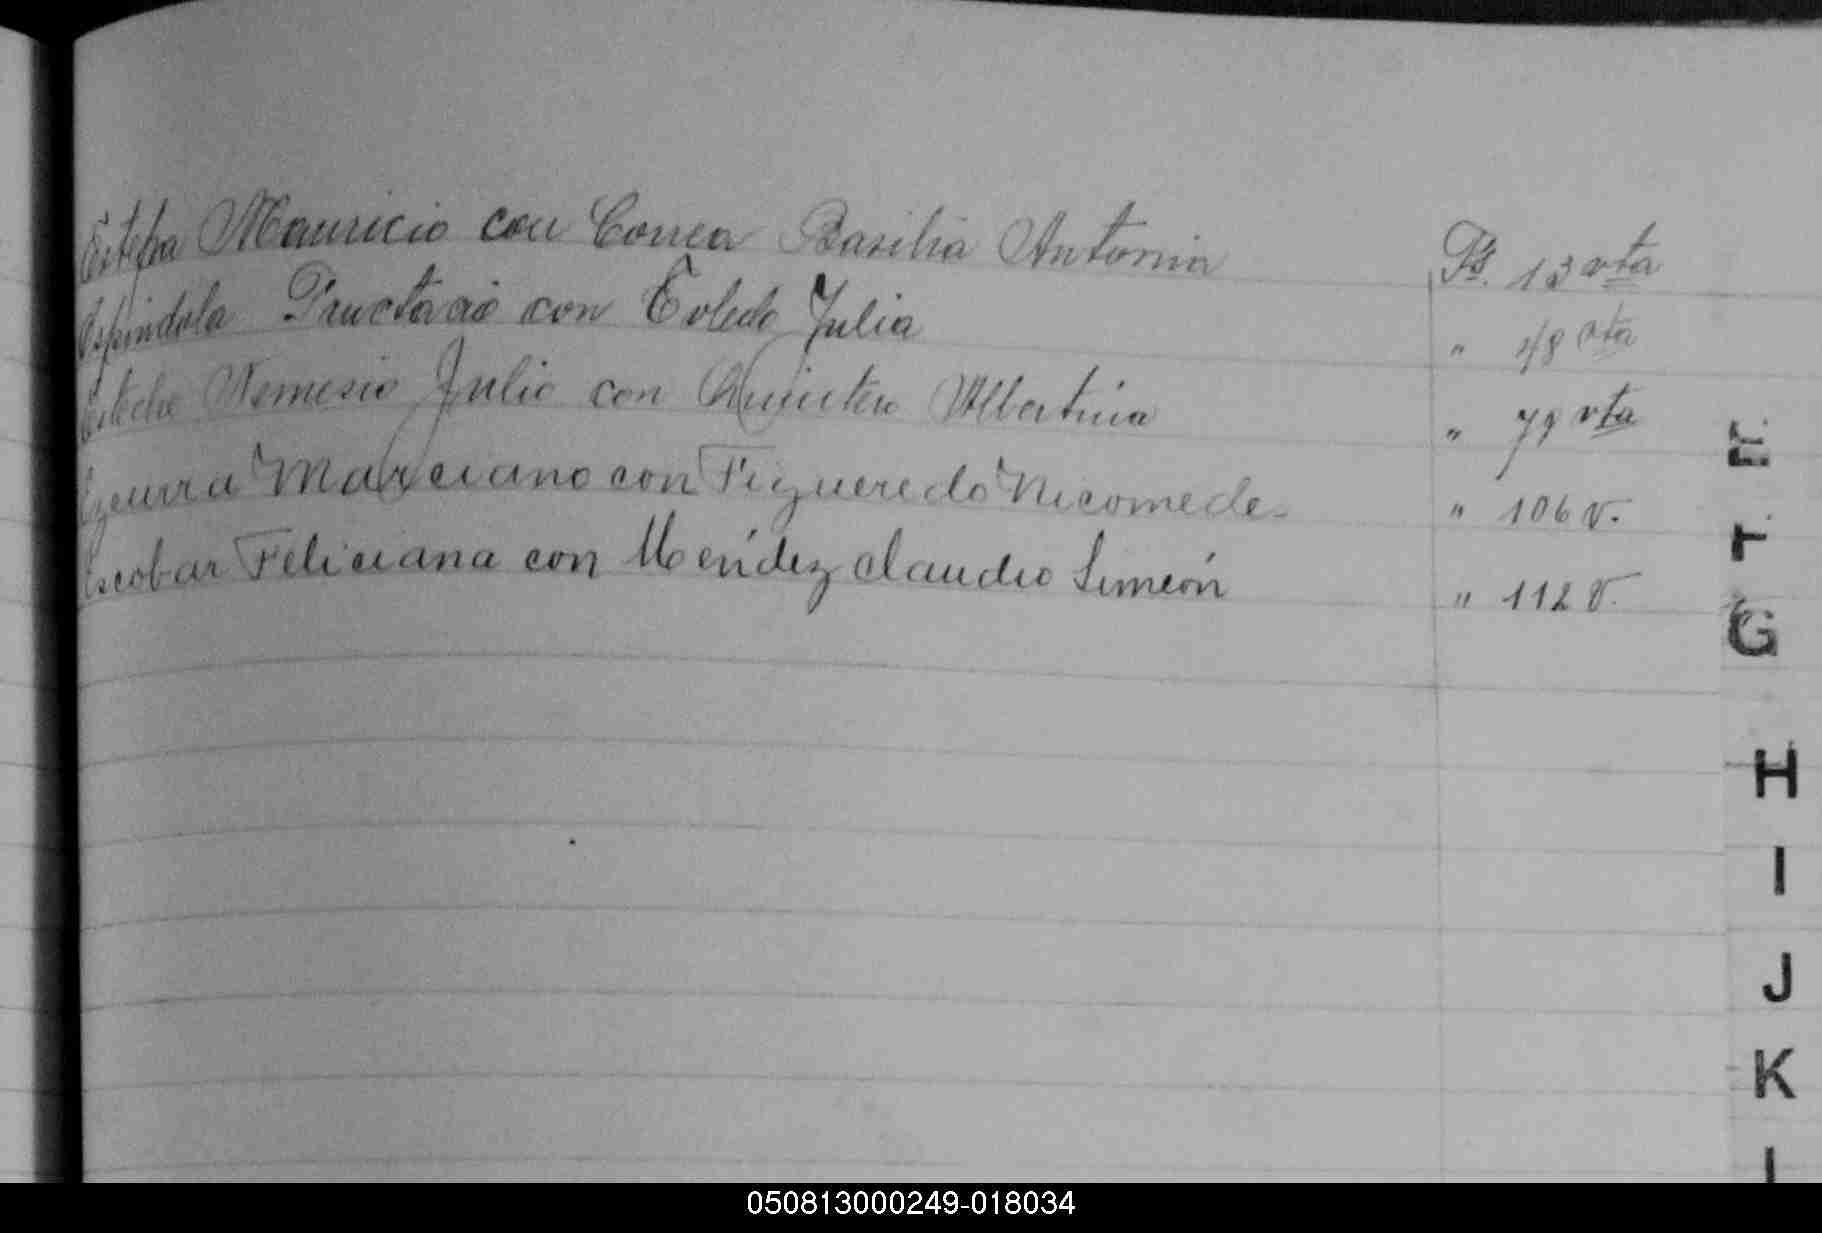 Mauricio con Correa Basilia Antonia Fs. 13 vta
Espindola con Toledo Julia " 48 vta
Esteche Nemesio Julio con Quintero Albertina " 79 vta
Marciano con Figueredo Nicomede " 106 v.
Escobar Feliciana con Meńdez Claudio Simeón " 112 v.
E
F
G
H
I
J
K
050813000249-018034